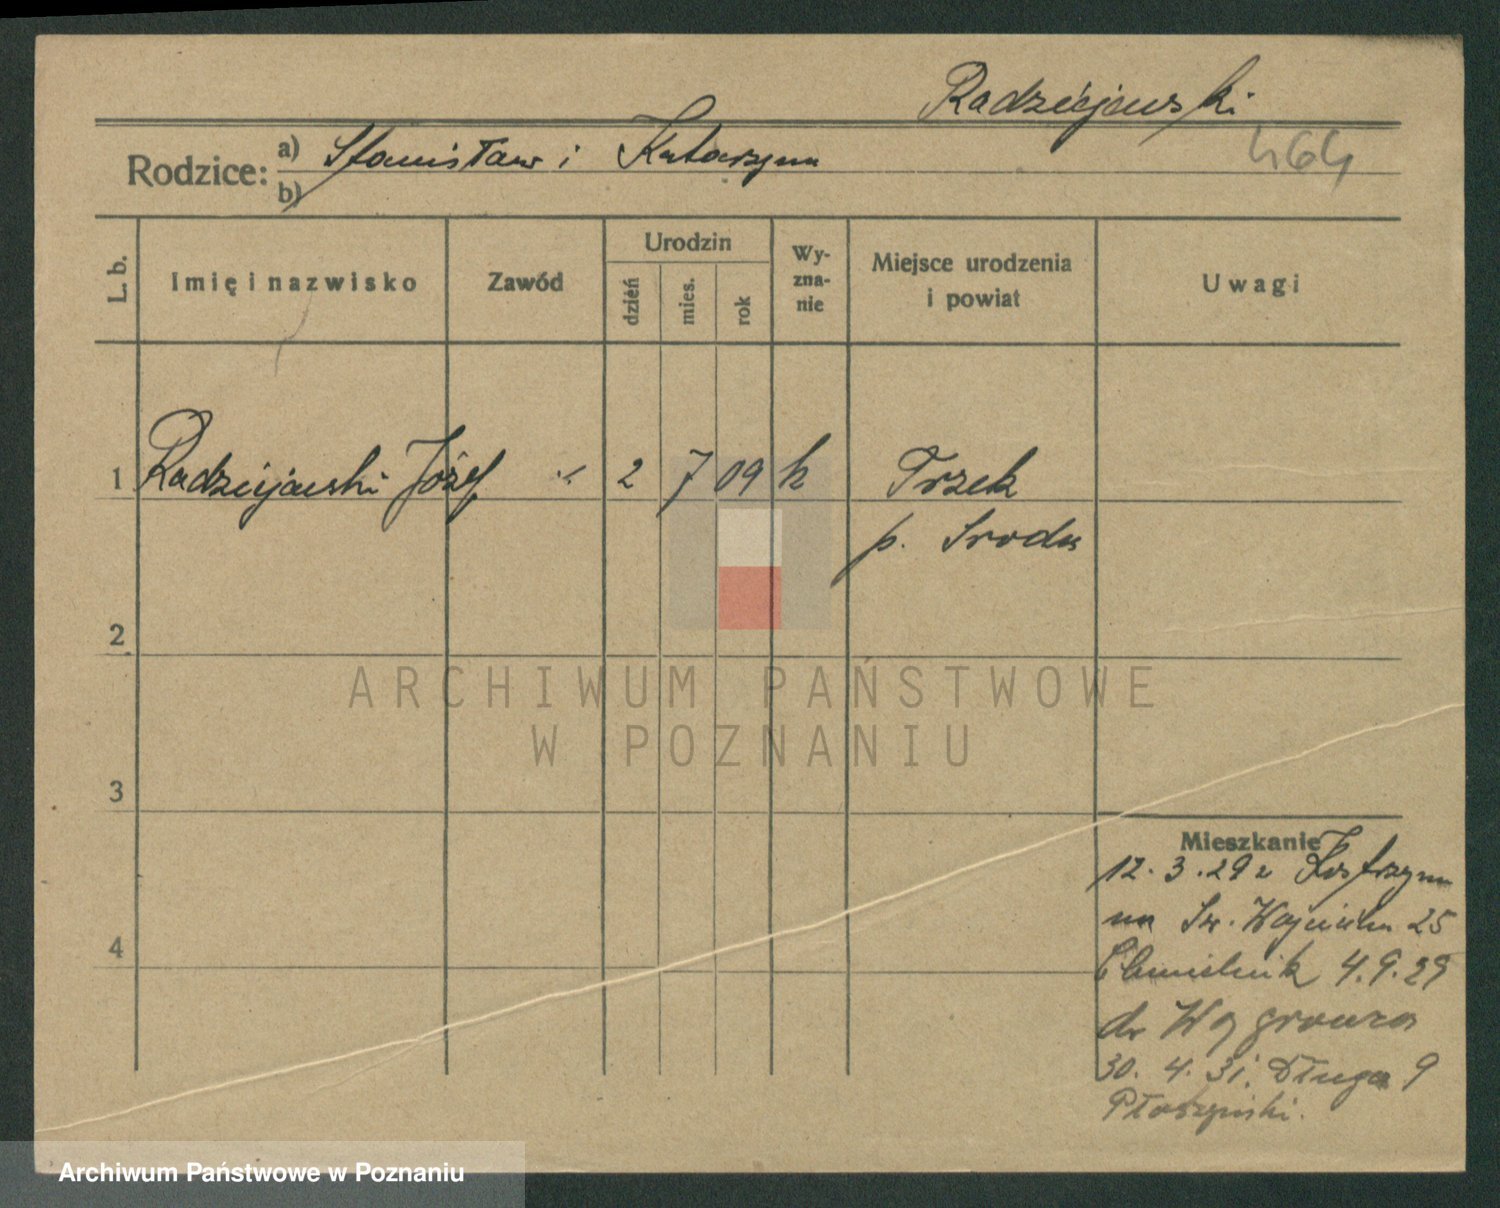 Radziejewski
464
Rodzice: a) Stanisław i Katarzyna
b)
L. b. Imię i nazwisko Zawód Urodzin dzień mies. rok Wyznanie Miejsce urodzenia i powiat Uwagi
1 Radziejewski Józef 2 7 09 k Trzek
p. Środa
2
ARCHIWUM PAŃSTWOWE
W POZNANIU
3
Mieszkanie
12. 3. 29 z Kostrzyna
na Św. Wojciecha 25
4
Chmielnik 4. 9. 29
do Wągrowca
30. 4. 31. Długa 9
Archiwum Państwowe w Poznaniu